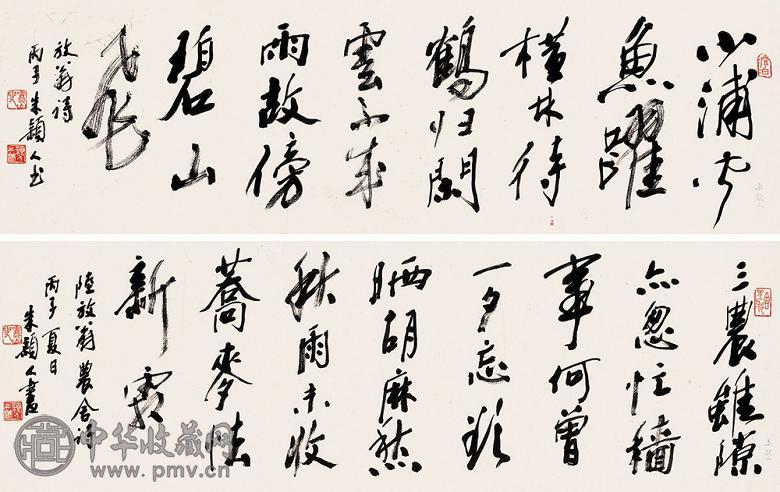 小浦闻
魚躍
横林待
鶴归閑
雲不成
雨故傍
碧山
飛
放翁詩
丙子朱穎人书
三農雖隙
亦怱忙穡
事何曾
一夕忘欲
晒胡麻愁
秋雨未收
蕎麥怯
新霜
陸放翁農舍詩
丙子夏日
朱穎人書
中华收藏网
www.pmv.cn